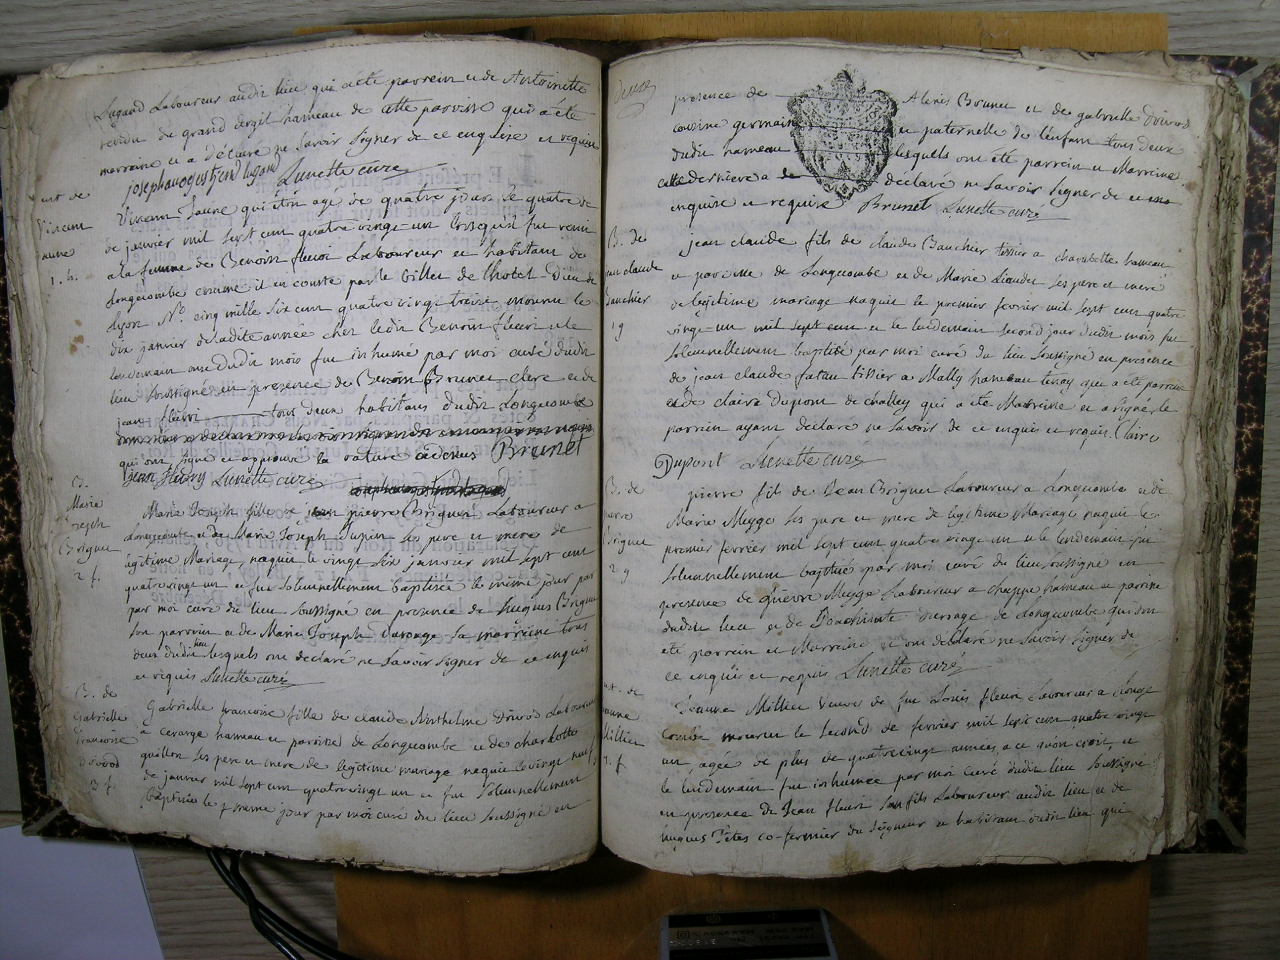 Lugand Laboureur audit lieu qui a été parrein et de Antoinette
revdu de grand dergit hameau de cette paroisse qui a été
marraine et a déclaré ne savoir signer de ce enquise et requise
joseph augustin lugand Lunette curé
ent de
Vincent
1. h.
Vincent Laure qui etoit agé de quatre jours le quatre de
de janvier mil sept cent quatre vingt un lorsqu'il fut remis
a la femme de Benoit fleuri Laboureur et habitant de
Longecombe comme il en conste par le billet de l'hotel-Dieu de
Lyon No. cinq mille six cent quatre vingt treize mourut le
dix janvier de ladite année chez ledit Benoit fleuri et le
lendemain onze dudit mois fut inhumé par moi curé dudit
lieu soussigné en presence de Benoit Brunet clerc et de
jean fleuri tous deux habitans dudit Longecombe
qui ont signé et approuvé la rature cidessus Brunet
jean fleury Lunette curé
B.
Marie
Joseph
Briguet
2 f.
Marie Joseph fille de pierre Briguet Laboureur a
Longecombe et de Marie Joseph Dupin ses pere et mere de
légitime Mariage, naquit le vingt six janvier mil sept cent
quatrevingt un et fut solemnellement baptisée le même jour par
par moi curé du lieu soussigné en presence de huques Briguet
son parrein et de Marie Joseph Duraoge sa marreine tous
deux dudit lieu lesquels ont declaré ne savoir signer de ce enquis
et requis Lunette curé
B. de
Gabrielle
françoise
Drovod
3 f.
Gabrielle françoise fille de claude Anthelme Drovod Laboureur
a cerarge hameau et paroisse de Longecombe et de charlotte
quillon ses pere et mere de legitime mariage naquit le vingt neuf
de janvier mil sept cent quatrevingt un et fut solemnellement
baptisée le même jour par moi curé du lieu soussigné en
deux
presence de Alexis Brunet et de gabrielle Drovod
cousine germain et paternelle de l'enfant tous deux
dudit hameau lesquels ont été parrein et Marreine
cette derniere a declaré ne savoir signer de ce
enquise et requise Brunet Lunette curé
B. de
jean claude
Bauchier
1 g
jean claude fils de claude Bauchier tissier a charbotte hameau
et paroisse de Longecombe et de Marie Liaudet ses pere et mere
de légitime mariage naquit le premier fevrier mil sept cent quatre
vingt-un mil sept cent et le lendemain second jour dudit mois fut
solemnellement baptisé par moi curé du lieu soussigné en presence
de jean claude tissier a Mally hameau qui a été parrein
et de claire Dupont de challey qui a été Marreine et a signé le
parrein ayant declaré ne savoir de ce enquis et requis. Claire
Dupont Lunette curé
B. de
pierre
Briguet
2 g
pierre fils de Jean Briguet Laboureur a Longecombe et de
Marie Mugge ses pere et mere de legitime Mariage naquit le
premier fevrier mil sept cent quatre vingt un et le lendemain fut
solemnellement baptisé par moi curé du lieu soussigné en
presence de pierre Mugge Laboureur a cheppe hameau et paroisse
dudit lieu et de de Longecombe qui ont
été parrein et Marreine et ont declaré ne savoir signer de
ce enquis et requis Lunette curé
ent. de
Jeanne
Millier
1. f
Jeanne Millier veuve de feu Louis fleuri Laboureur a Longe
combe mourut le second de fevrier mil sept cent quatre vingt
un agée de plus de quatrevingt années, a ce qu'on croit, et
le lendemain fut inhumée par moi curé dudit lieu soussigné
en presence de Jean fleuri son fils Laboureur audit lieu et de
huques Tétes co-fermier du seigneur et habitant dudit lieu qui